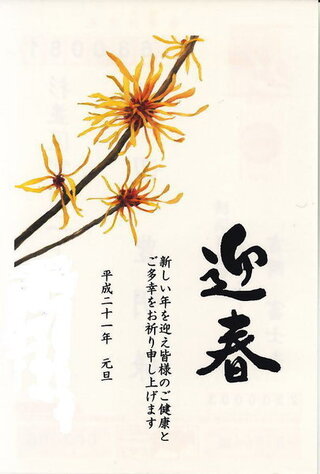 迎春
新しい年を迎え皆様のご健康と
ご多幸をお祈り申し上げます
平成二十一年 元旦